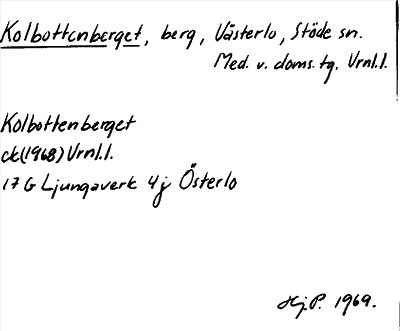 Kolbottenberget, berg, Västerlo, Stöde sn.
Med. v. doms. tg. Vrnl.l.
Kolbottenberget
ek(1968) Vrnl.l.
17 G Ljungaverk 4j Österlo
Hj.P. 1969.